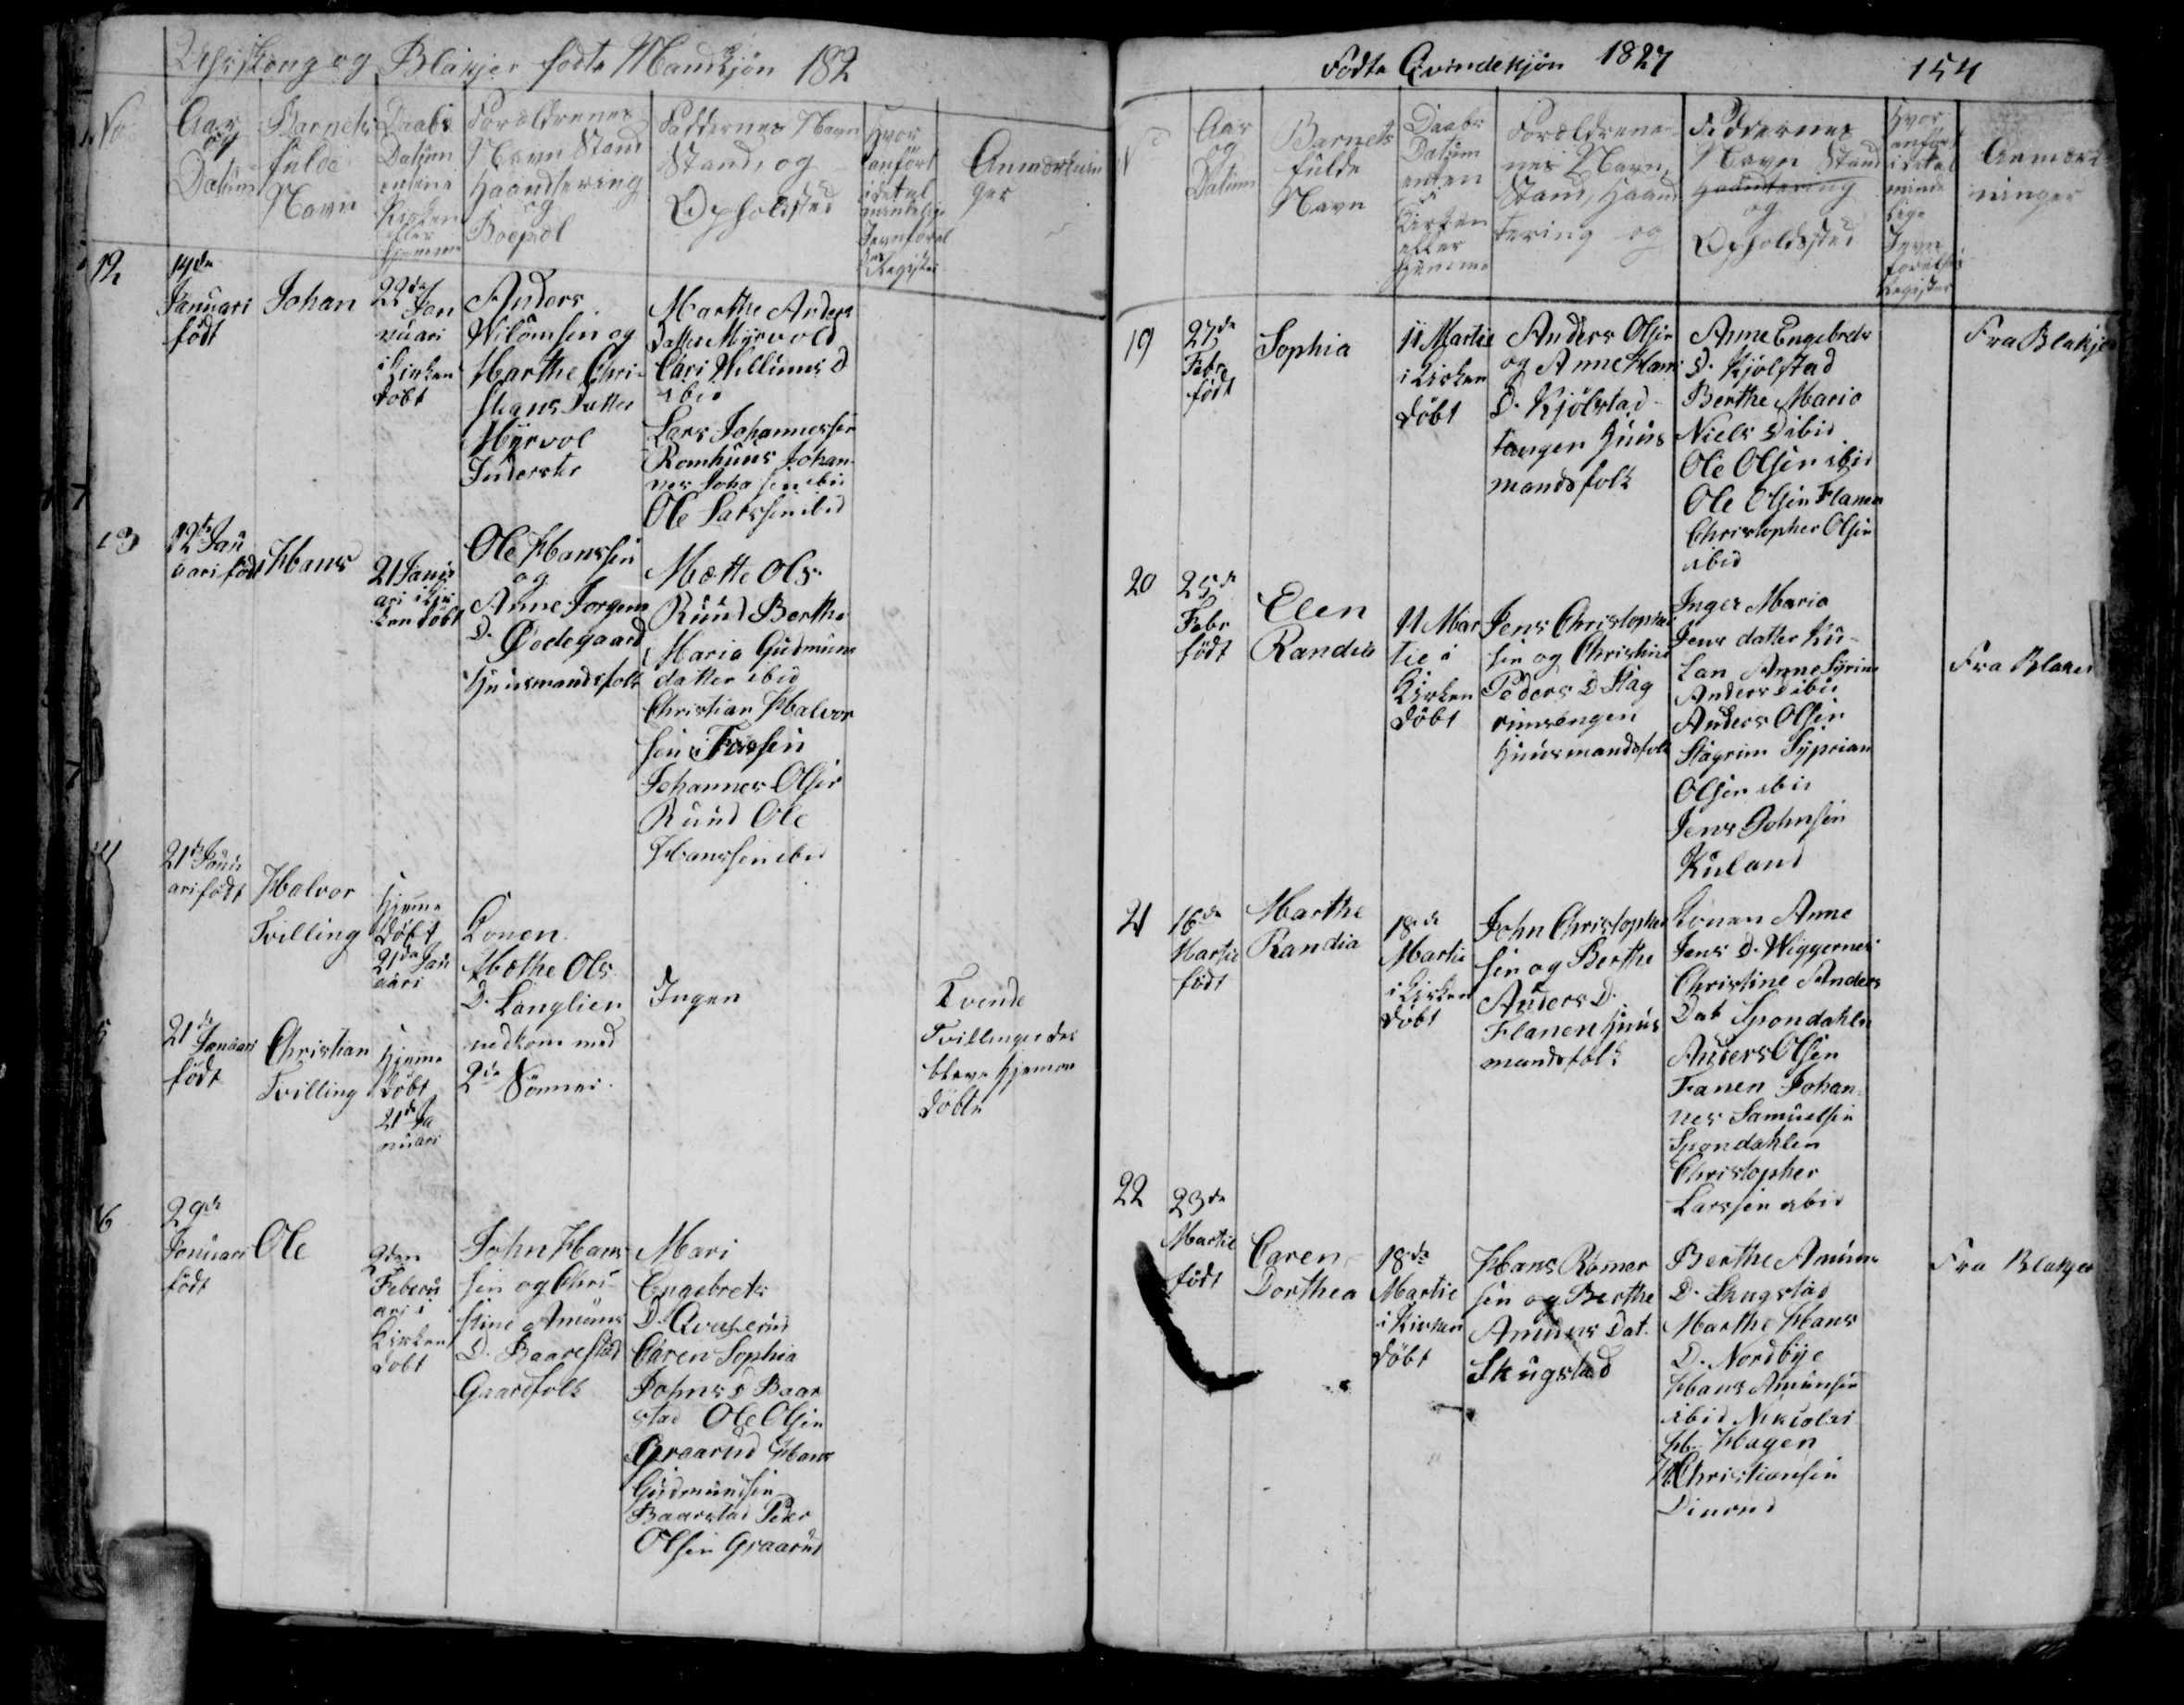 og Blakjer fødte Mandkjøn 182
No
Aar
og
Datum
Barnets
fulde
Navn
Daabs
Datum
Kirken
eller
hjemme
Forældrenes
Navn Stand
Haandtering
og
Boepæl
Faddernes Navn
Stand, og
Opholdsted
Hvor
anført
Register
Anmærknin
ger
12
14de
Januari
født
Johan
22de Jan
nuari
i Kirken
døbt
Anders
Wilomsen og
Marthe Chri
stians Datter
Myrvol
Inderster
Marthe Anders
Datter Myrvold
Cari Willums D
ibid
Lars Johannessen
Romhuus Johan
nes Joha sen ibid
Ole Larssen ibid
13
12te Jan
uari født
Hans
21 Janu
ari i Kir
ken døbt
Ole Hanssen
og
Anne Jorgens
D. Ødegaard
Huusmandsfolk
Mette Ols
Ruud Berthe
Maria Gudmuns
datter ibid
Christian Halvor
sen Fossen
Johannes Olsen
Ruud Ole
Hanssen ibid
21de Janu
ari født
Halvor
Tvilling
hjemme
Døbt
21de Jan
uari
Konen
Mæthe Ols
D. Langlien
nedkom med
2de Sønner.
Ingen
Tvende
Tvillinger der
bleve hjemme
døbte
21de
Januari
født
Christian
Tvilling
hjemme
døbt
21de Ja
nuari
6
29de
Januari
født
Ole
9den
Februa
ari i
Kirken
døbt
John Hans
sen og Chri
stine Amuns
D. Baarestad
Gaardfolk
Mari
Engebrets
D.
Caren Sophia
Johns D Baar
stad Ole Olsen
Graarud Hans
Gudmundsen
Baarstad Peder
Olsen Graarud
Fødte Qvindekjøn 1827
154
Aar
og
Datum
Barnets
fulde
Navn
Daabs
Datum
enten
i
Kirken
eller
hjemme
Forældrene
nes Navn,
Stand, Haand
tering og
Faddernes
Navn Stand
Haandtering
og
Opholdssted
Hvor
anført
i det al
minde
lige
Jevn
førelses
Register
Anmærk
ninger
19
27de
Febr
født
Sophia
11 Martie
i Kirken
døbt
Anders Olsen
og Anne Hans
D. Kjølstad
tangen Huus
mandsfolk
Anne Engebrets
D. Kjølstad
Berthe Maria
Niels D ibid
Ole Olsen ibid
Ole Olsen Flanen
Christopher Olsen
ibid
Fra Blakjer
20
25de
Febr
født
Elen
Randia
11 Mar
tie i
Kirken
døbt
Jens Christopher
sen og Christine
Peders D Slag
rimsengen
Huusmandsfolk
Inger Maria
Jens datter Ku
lan Anne Syrine
Anders D ibid
Anders Olsen
Slagrim Syprian
Olsen ibid
Jens Johnsen
Kuland
Fra Blakjer
21
16de
Martie
født
Marthe
Randia
18de
Martie
i Kirken
døbt
John Christopher
sen og Berthe
Anders D.
Flanen Huus
mandsfolk
Konen Anne
Jens D. Wiggernes
Christine Anders
Dat Spondahlen
Anders Olsen
Fanen Johan
nes Samuelsen
Spondahlen
Christopher
Larssen ibid
22
23de
Martie
født
Caren
Dorthea
18de
Martie
i Kirken
døbt
Hans Romer
sen og Berthe
Amuns Dat.
Skugstad
Berthe Amuns
D. Skugstad
Marthe Hans
D. Nordbye
Hans Amunsen
ibid Nikolai
Hagen
Christiansen
Fra Blakjer